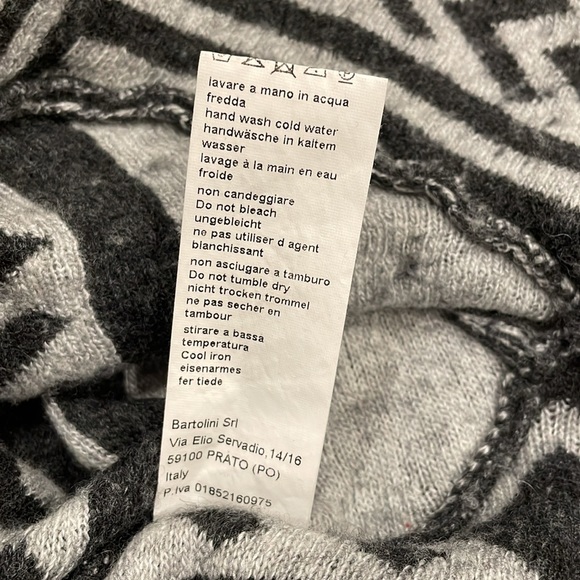 lavare a mano in acqua
fredda
hand wash cold water
handwäsche in kaltem
wasser
lavage à la main en eau
froide
non candeggiare
Do not bleach
ungebleicht
ne pas utiliser d agent
blanchissant
non asciugare a tamburo
Do not tumble dry
nicht trocken trommel
ne pas secher en
tambour
stirare a bassa
temperatura
Cool iron
eisenarmes
fer tiede
Bartolini Srl
Via Elio Servadio,14/16
59100 PRATO (PO)
Italy
P.Iva 01852160975